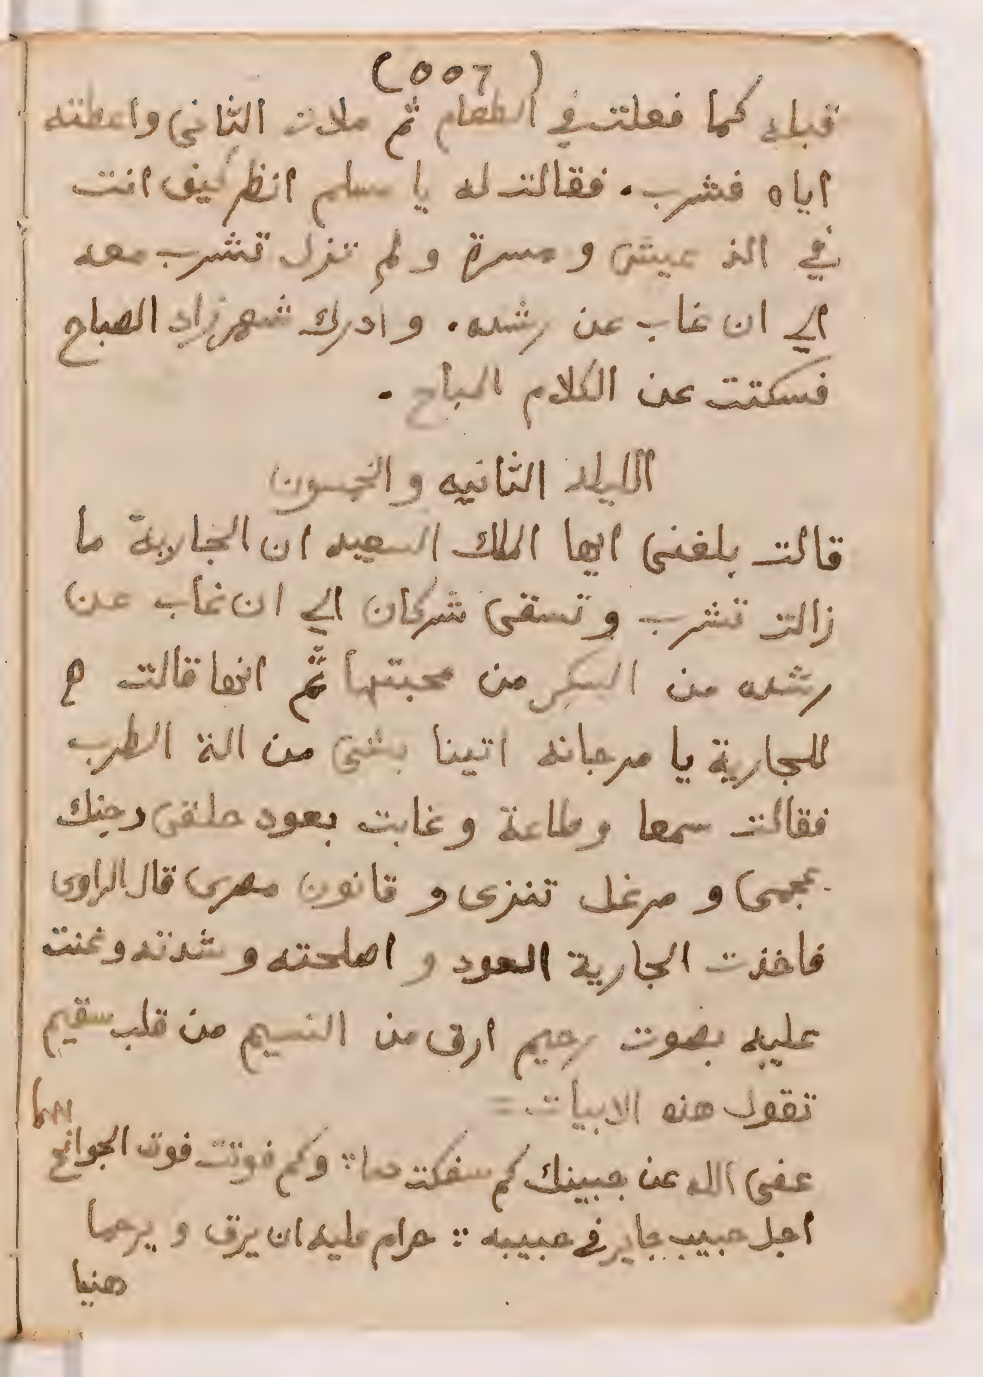 (557)
قبله كما فعلت في الطعام ثم ملات الثاني واعطته
اياه فشرب. فقالت له يا مسلم انظر كيف انت
في الذ عيش و مسرة و لم تزل تشرب معه
الي ان غاب عن رشده. و ادرك شهرزاد الصباح
فسكتت عن الكلام المباح.
الليله الثانيه والخمسون
قالت بلغني ايها الملك السعيد ان الجارية ما
زالت تشرب و تسقي شركان الي ان غاب عن
رشده من السكر من محبتها ثم انها قالت
للجارية يا مرجانه اتينا بشئ من الة الطرب
فقالت سمعا وطاعة و غابت بعود جلقي وجنك
عجمي و مرغل تتزى و قانون مصرى قال الراوى
فاخذت الجارية العود و اصلحته و شدته وغنت
عليه بصوت رخيم ارق من النسيم من قلب سقيم
تقول هذه الابيات =
عفى الله عن جبينك كم سفكت دما ∴ وكم فوتت فوق الجوانح اسهما
اجل حبيب جاير في حبيبه ∴ حرام عليه ان يرق و يرحما
هنيا